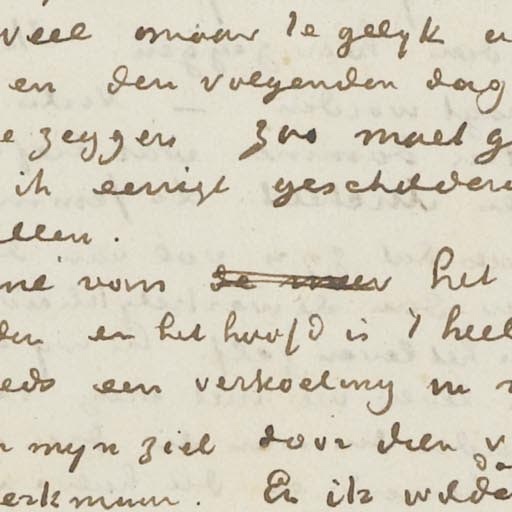 veel maar te gelyk
en den volgenden dag
e zeggen zoo moet g
ik eerst geschilder
llen.
me van de meer het
den en het hoofd is 't heel
eds een verkoeling in
myn ziel door den v
erkman. En ik wilde